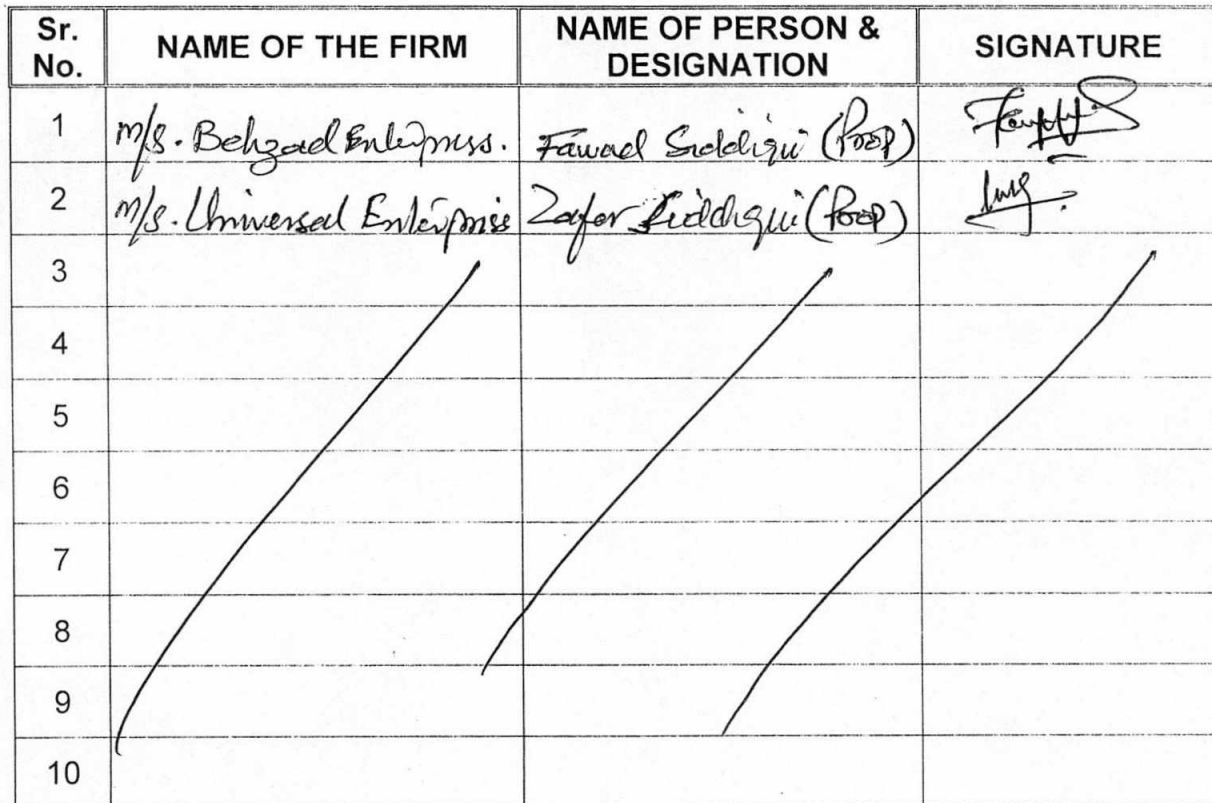 Sr. No. NAME OF THE FIRM NAME OF PERSON & DESIGNATION SIGNATURE
1 m/s. Behzad Enterpriss. Fawad Siddiqui (Prop)
2 m/s. Universal Enterpriss Zafar Siddiqui (Prop)
3
4
5
6
7
8
9
10